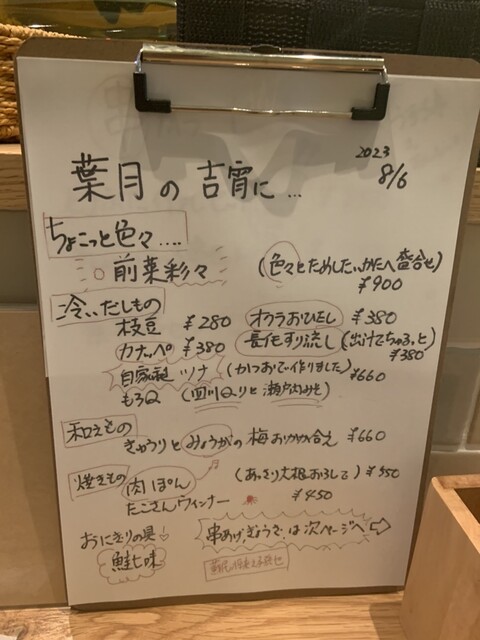 2023
8/6
葉月の吉宵に...
ちょこっと色々....
前菜彩々 (色々とためしたいかたへ盛合せ)
¥900
冷たいもの
枝豆 ¥280 オクラおひたし ¥380
カナッペ ¥380 長芋すり流し (出汁でちゅるっと)
¥380
自家製 ツナ (かつおで作りました) ¥660
もろQ (四川Qりと瀬戸内みそ)
和えもの
きゅうりとみょうがの梅おかか合え ¥660
焼きもの 肉ぽん (あっさり大根おろしで) ¥550
たこさんウィンナー ¥450
おにぎりの具
鮭七味
串あげ、ぎょうざ、は次ページへ⇨